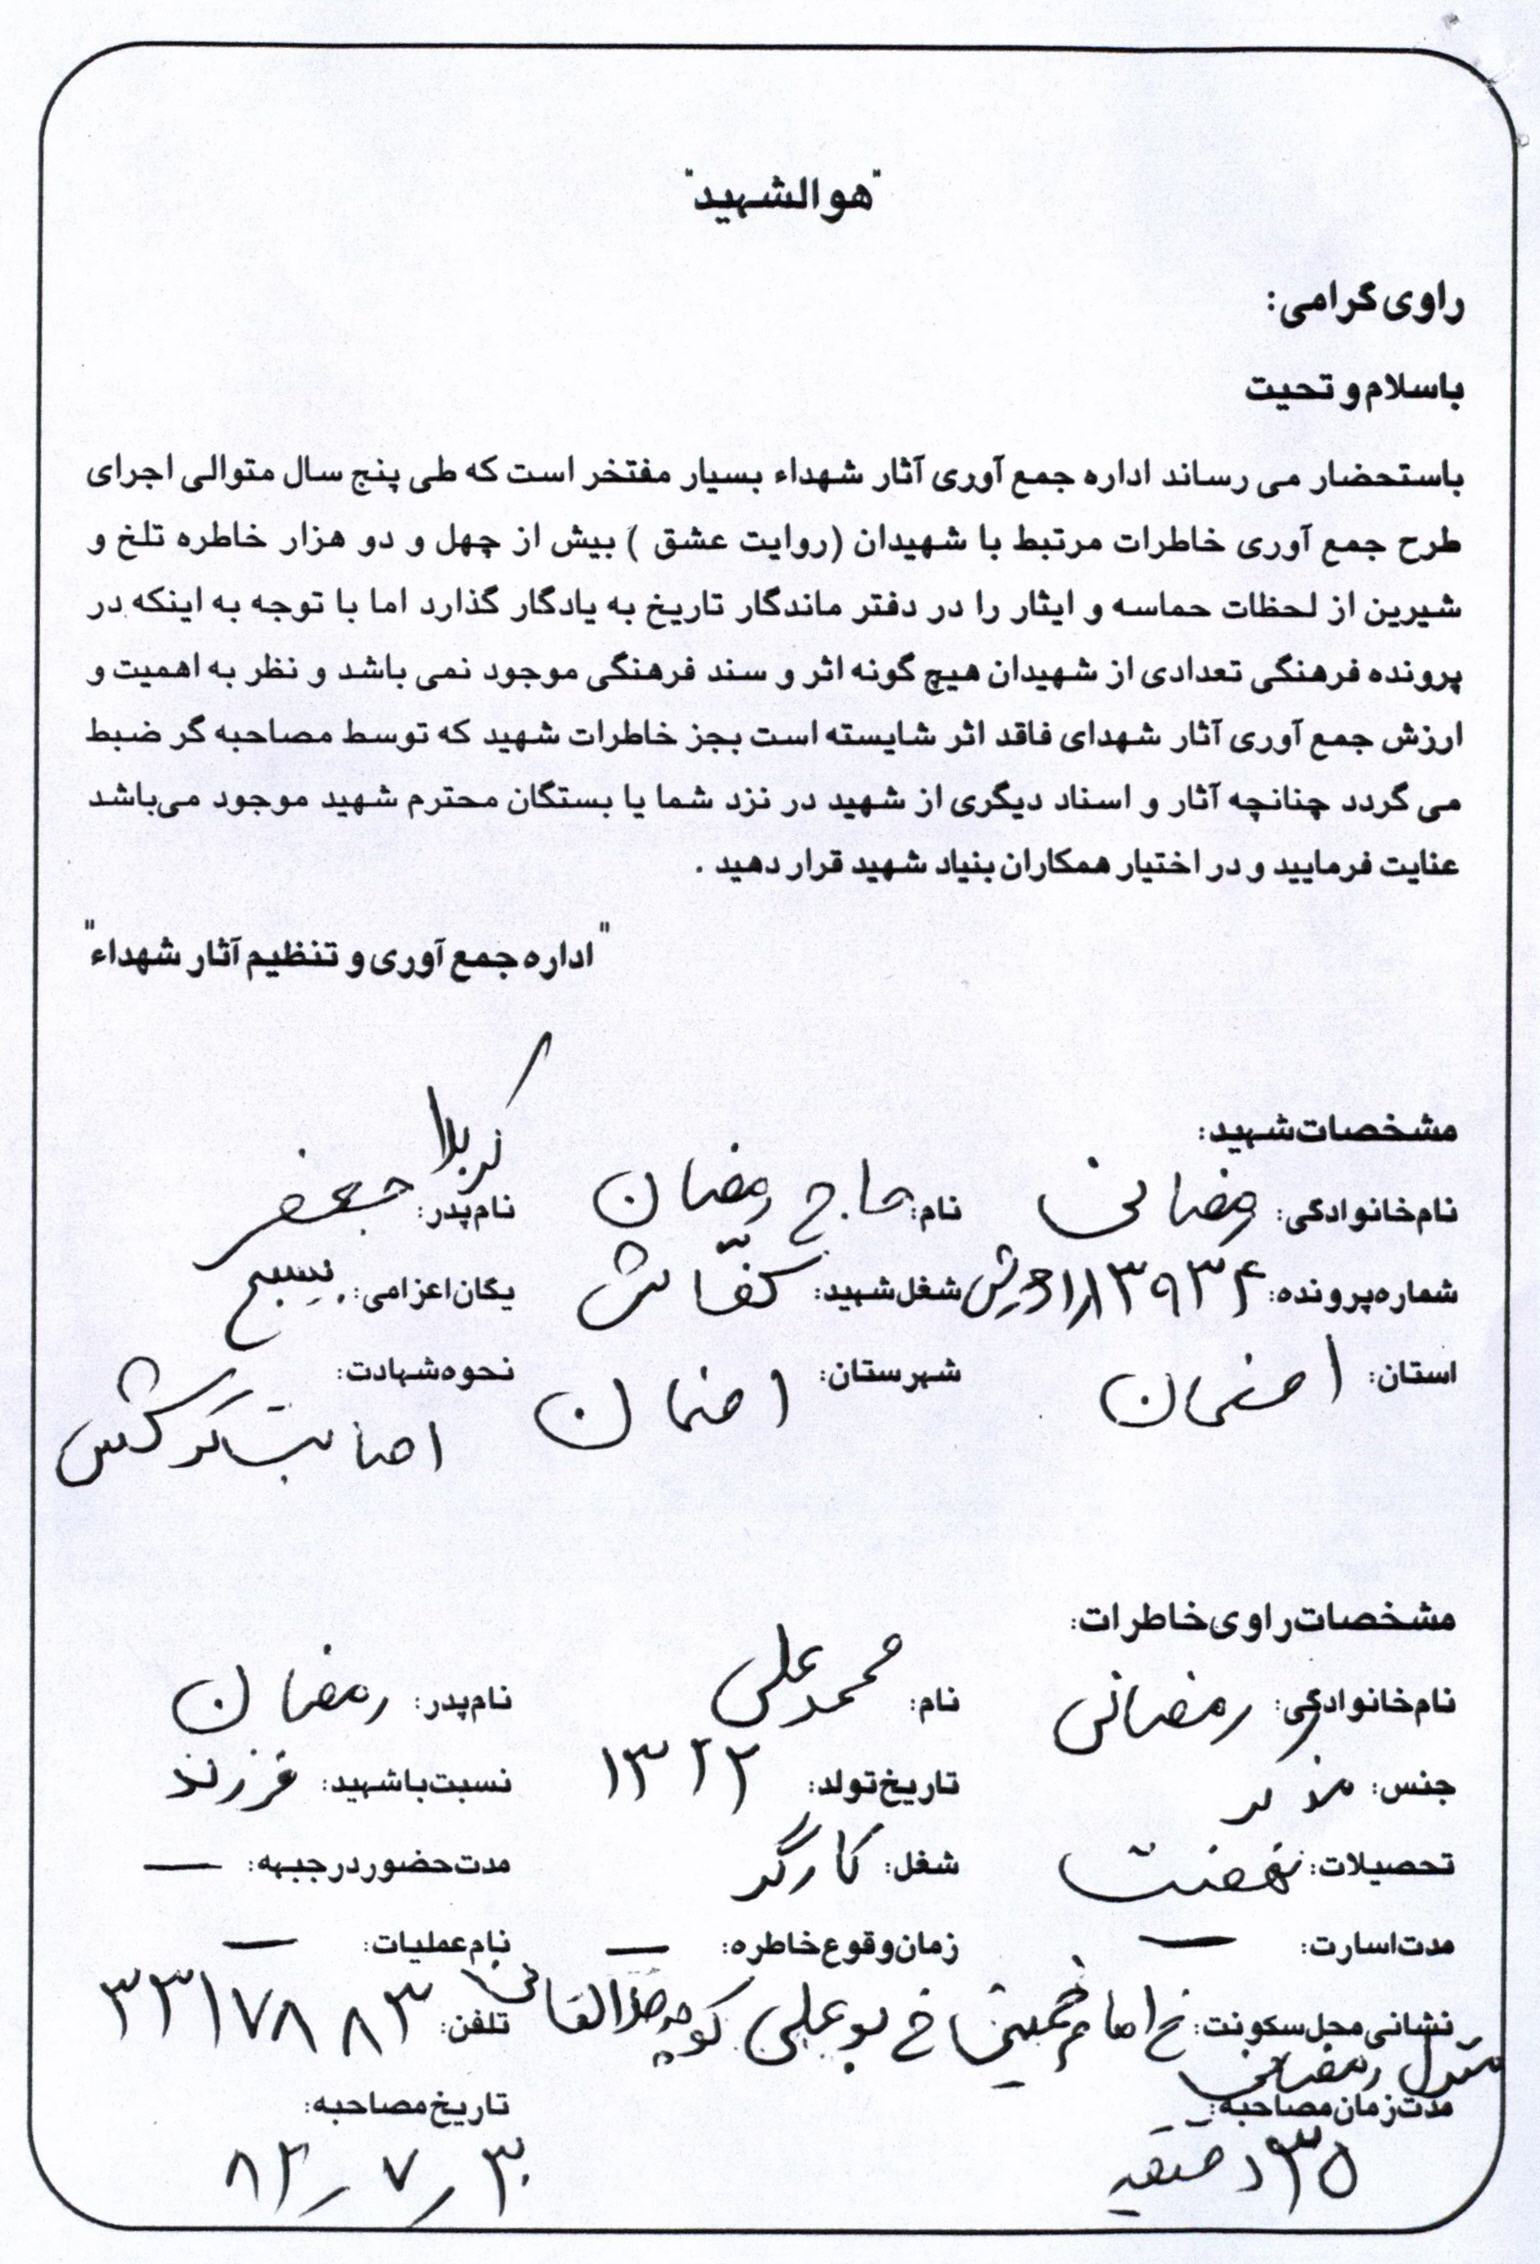 "هوالشهید"
راوی گرامی:
باسلام و تحیت
باستحضار می رساند اداره جمع آوری آثار شهداء بسیار مفتخر است که طی پنج سال متوالی اجرای
طرح جمع آوری خاطرات مرتبط با شهیدان (روایت عشق ) بیش از چهل و دو هزار خاطره تلخ و
شیرین از لحظات حماسه و ایثار را در دفتر ماندگار تاریخ به یادگار گذارد اما با توجه به اینکه در
پرونده فرهنگی تعدادی از شهیدان هیچ گونه اثر و سند فرهنگی موجود نمی باشد و نظر به اهمیت و
ارزش جمع آوری آثار شهدای فاقد اثر شایسته است بجز خاطرات شهید که توسط مصاحبه گر ضبط
می گردد چنانچه آثار و اسناد دیگری از شهید در نزد شما یا بستگان محترم شهید موجود می‌باشد
عنایت فرمایید و در اختیار همکاران بنیاد شهید قرار دهید .
"اداره جمع آوری و تنظیم آثار شهداء"
مشخصات شهید:
نام خانوادگی: رمضانی نام: حاج رمضان نام پدر: کربلا جعفر
شماره پرونده: ۱۱۳۹۳۴ شغل شهید: کفّاش یگان اعزامی: بسیج
استان: اصفهان شهرستان: اصفهان نحوه شهادت:
اصابت ترکش
مشخصات راوی خاطرات:
نام خانوادگی: رمضانی نام: محمدعلی نام پدر: رمضان
جنس: مذکر تاریخ تولد: ۱۳۲۲ نسبت باشهید: فرزند
تحصیلات: نهضت شغل: کارگر مدت حضور در جبهه: —
مدت اسارت: — زمان وقوع خاطره: — نام عملیات: —
نشانی محل سکونت: خ امام خمینی خ بوعلی کوچه تلفن: ۳۳۱۷۸۸۳
منزل رمضانی
مدت زمان مصاحبه: تاریخ مصاحبه:
۳۵ دقیقه ۳۰/۷/۸۲